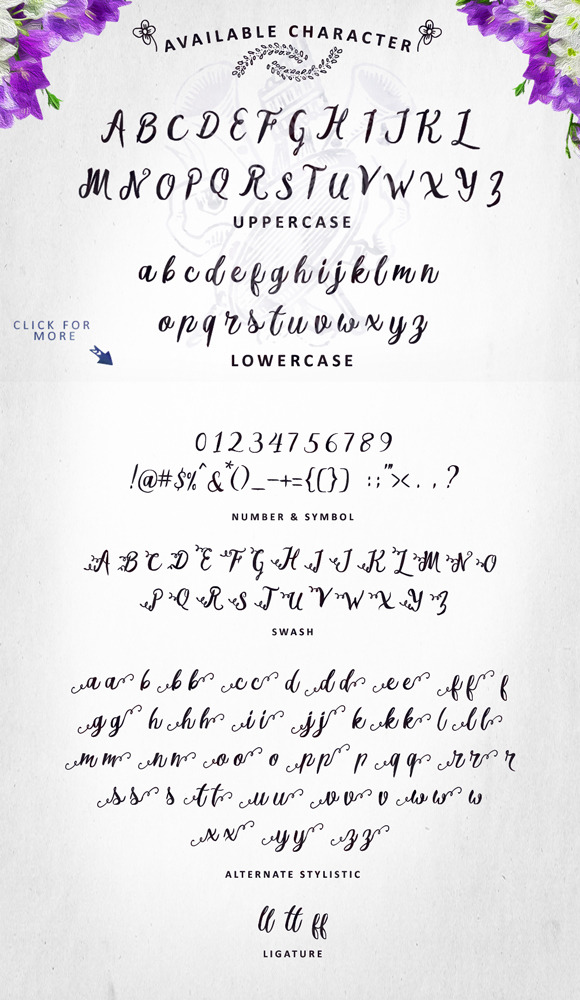 AVAILABLE CHARACTER
A B C D E F G H I J K L
M N O P Q R S T U V W X Y Z
UPPERCASE
a b c d e f g h i j k l m n
o p q r s t u v w x y z
CLICK FOR
MORE
LOWERCASE
0 1 2 3 4 7 5 6 7 8 9
!@#$%^&*()_-+={[}] :;"'>< . , ?
NUMBER & SYMBOL
A B C D E F G H I J K L M N O
P Q R S T U V W X Y Z
SWASH
a a b b b c c d d d e e f f f
g g h h h i i j j k k k l l l
m m n n o o o p p p q q r r r
s s s t t u u v v v w w w
x x y y z z
ALTERNATE STYLISTIC
ll tt ff
LIGATURE